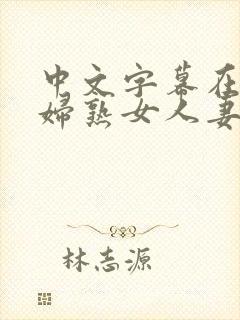 中文字幕在
婦熟女人妻
林志源